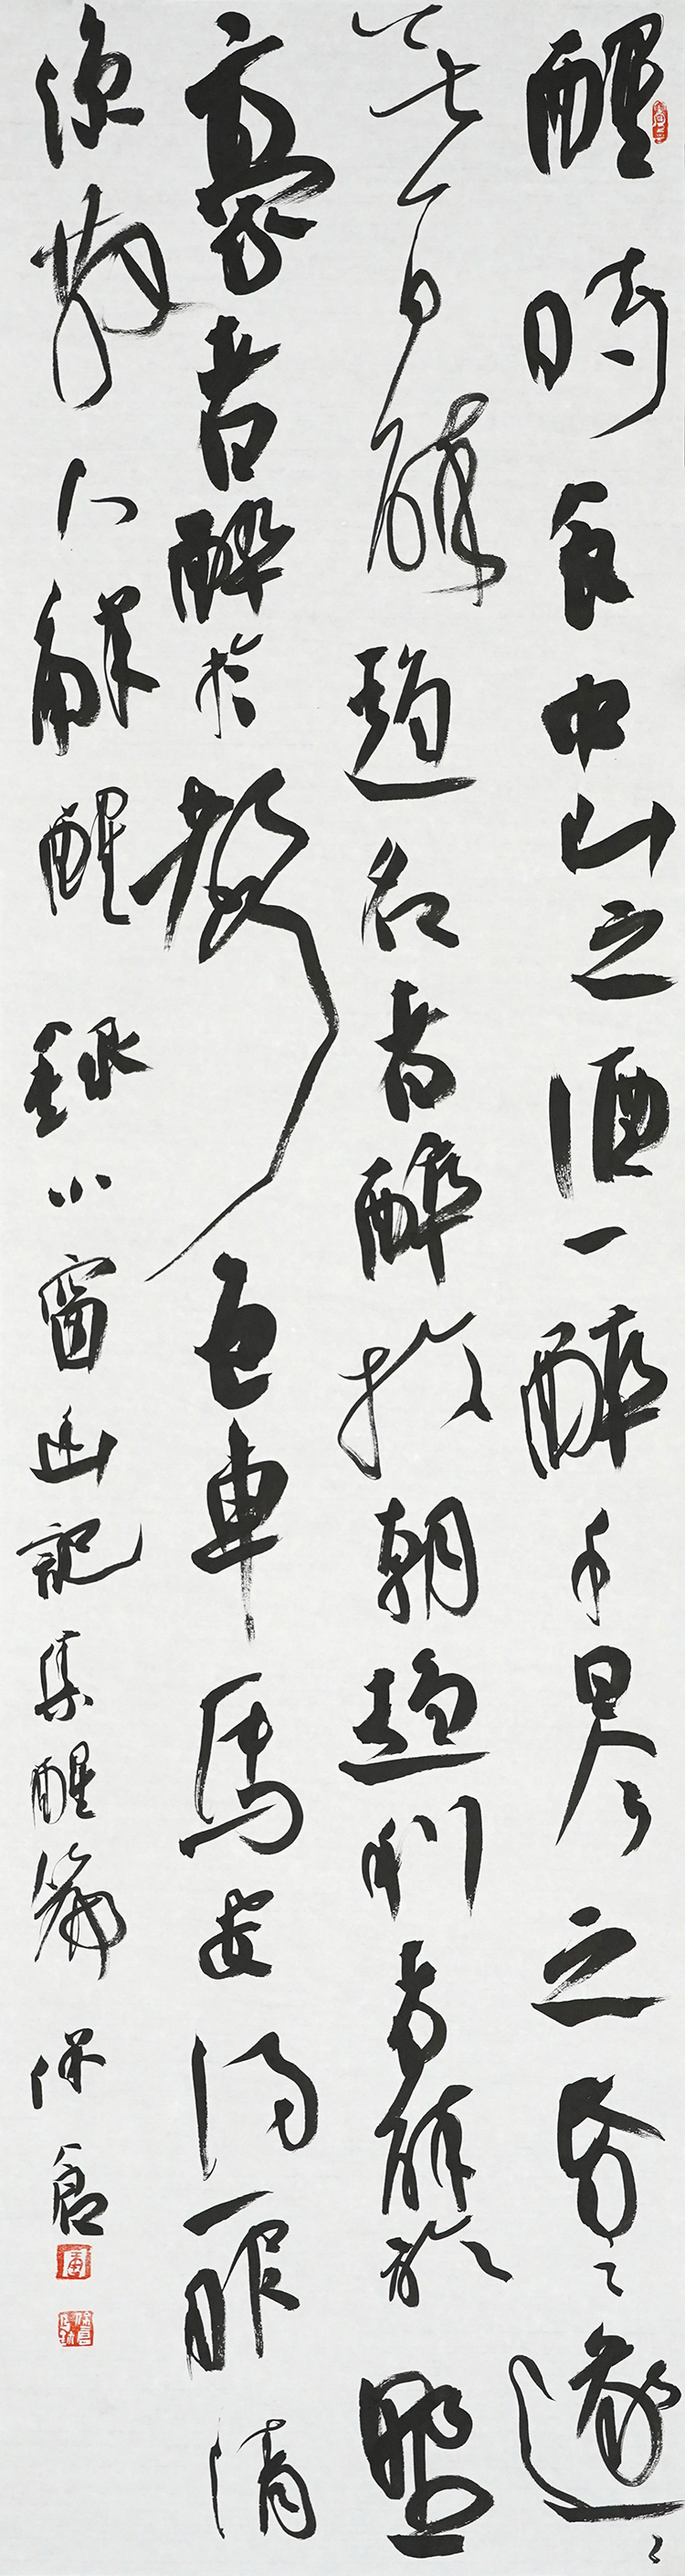 醒時食中山之酒一醉千日今之昏々逐々
無一日醉趨名者醉於朝趨利者醉於野
豪者醉於聲色車馬安得一服清
涼散人解醒 錄小窗幽記集醒篇